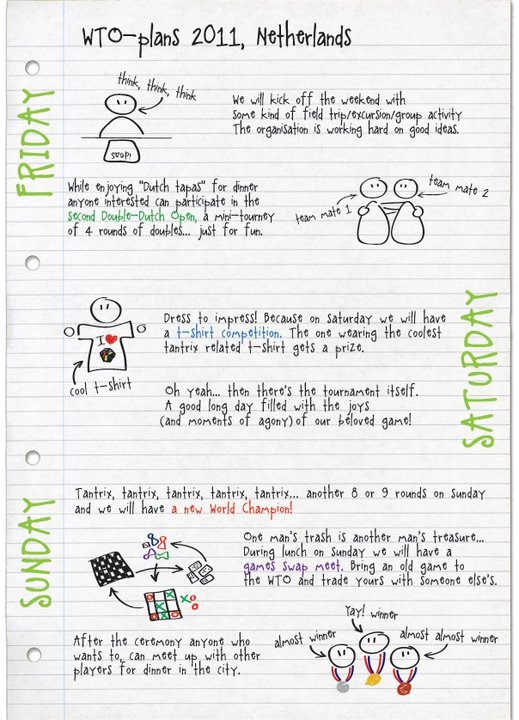 WTO-plans 2011, Netherlands
FRIDAY
think, think, think
ideas!
We will kick off the weekend with
some kind of field trip/excursion/group activity
The organisation is working hard on good ideas.
While enjoying "Dutch tapas" for dinner
anyone interested can participate in the
second Double-Dutch Open, a mini-tourney
of 4 rounds of doubles... just for fun.
team mate 1
team mate 2
SATURDAY
I
cool t-shirt
Dress to impress! Because on saturday we will have
a t-shirt competition. The one wearing the coolest
tantrix related t-shirt gets a prize.
Oh yeah... then there's the tournament itself.
A good long day filled with the joys
(and moments of agony) of our beloved game!
SUNDAY
Tantrix, tantrix, tantrix, tantrix, tantrix... another 8 or 9 rounds on Sunday
and we will have a new World Champion!
One man's trash is another man's treasure...
During lunch on Sunday we will have a
games swap meet. Bring an old game to
the WTO and trade yours with someone else's.
After the ceremony anyone who
wants to, can meet up with other
players for dinner in the city.
almost winner
Yay! winner
almost almost winner